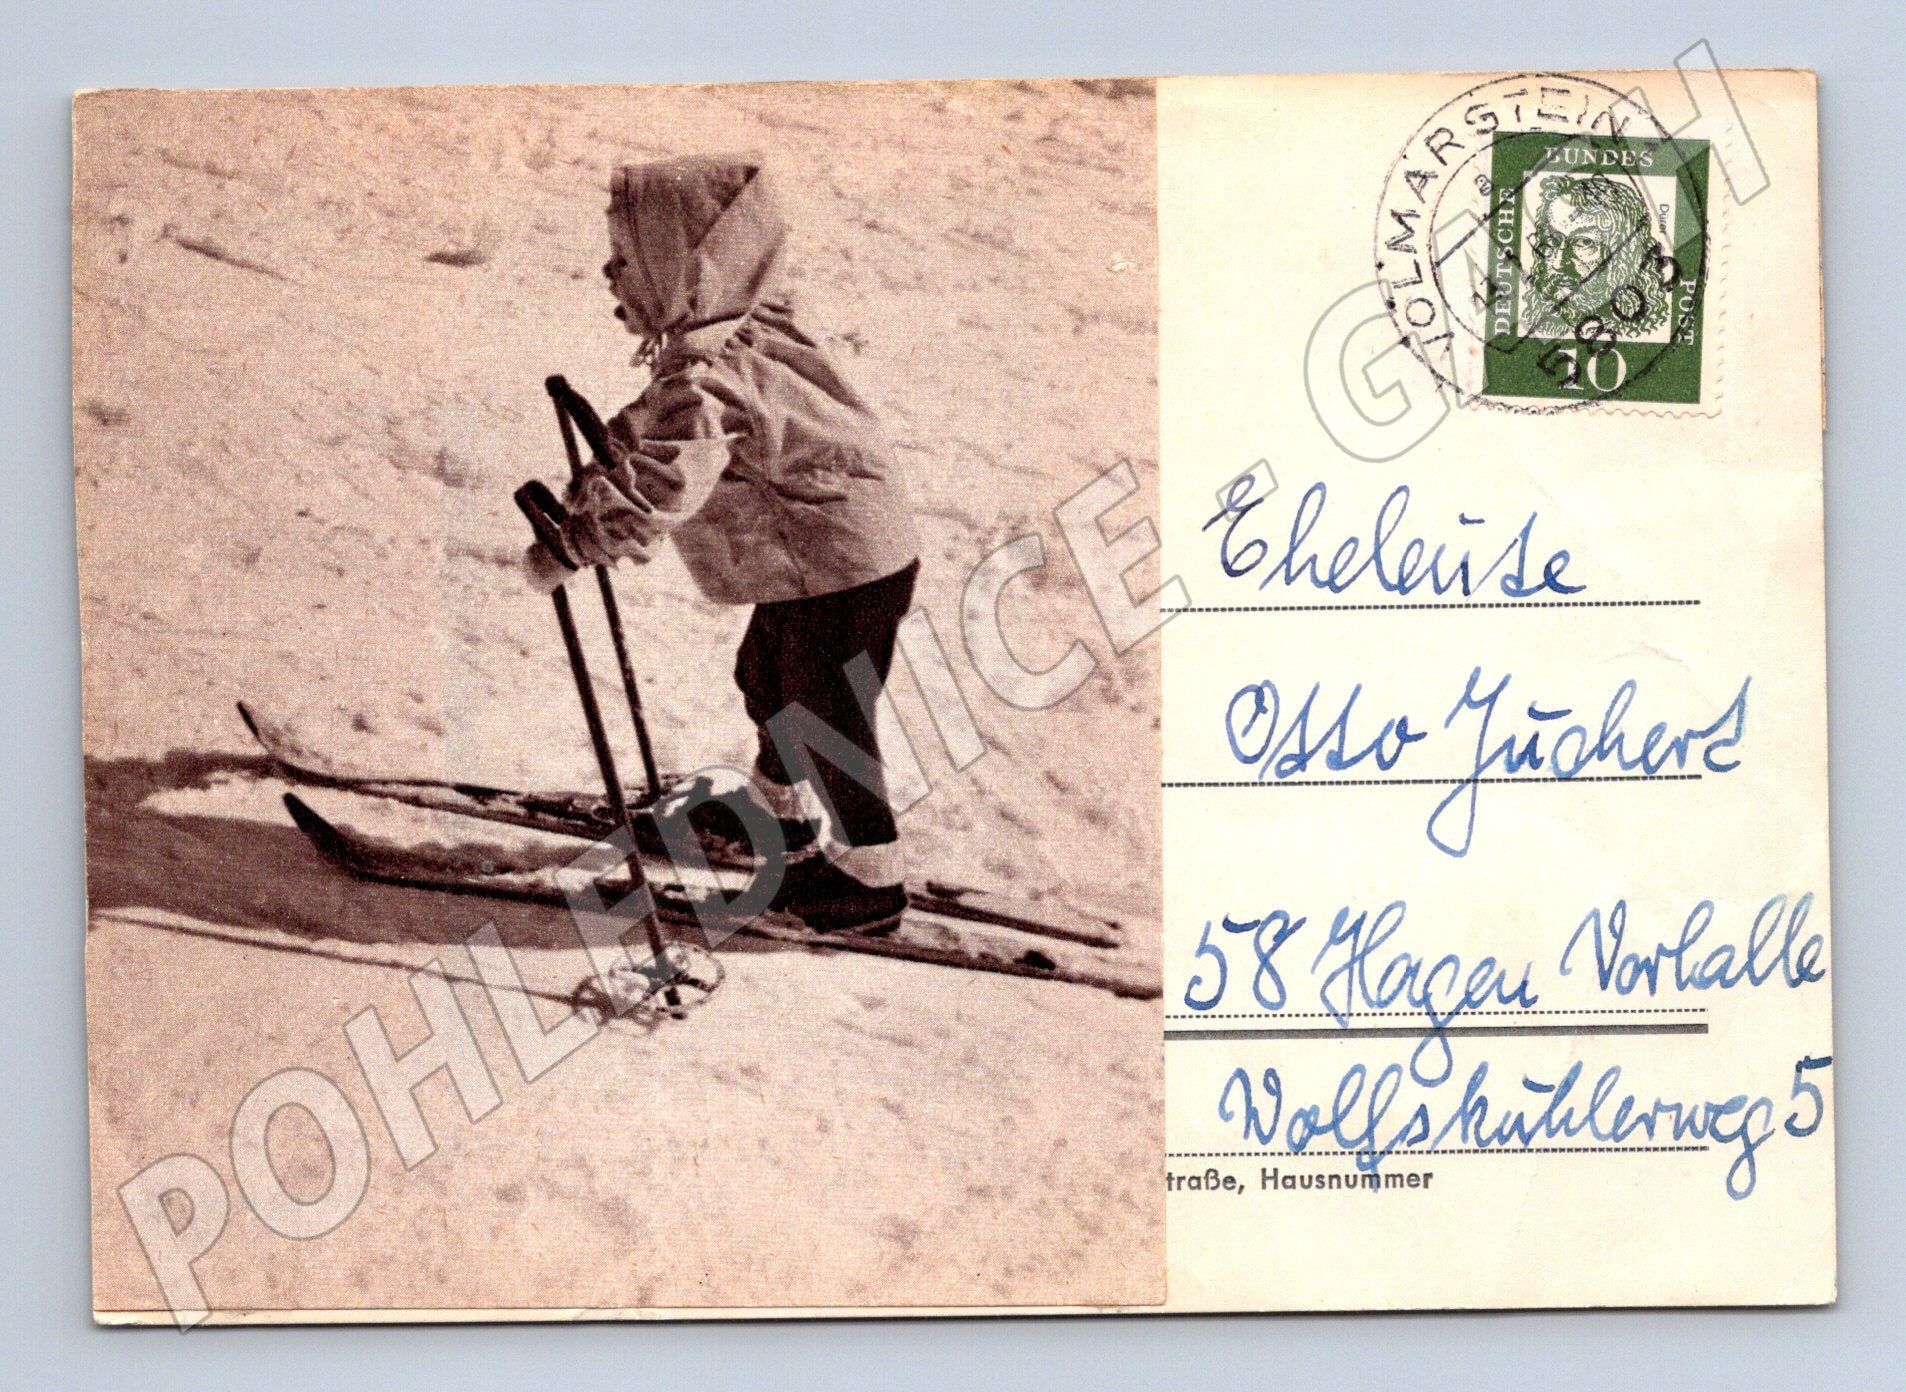 VOLMARSTEIN
a
5803
BUNDES
DEUTSCHE
POST
Dürer
10
Eheleute
Otto Juchert
58 Hagen Vorhalle
Wolfskuhlerweg 5
traße, Hausnummer
POHLEDNICE - GACH